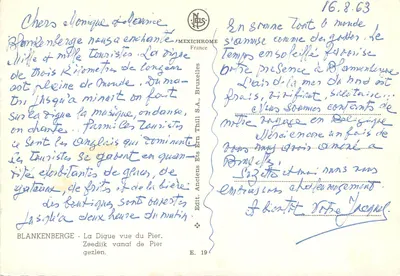 Chers Monique et Maurice
Blankenberge nous a enchanté
Mille et mille touristes. La digue
de trois kilomètre de longueur
est pleine de monde. Du ma-
tin jusqu'à minuit on fait
sur la digue la musique, on danse,
on chante. Parmi les touristes
ce sont les anglais qui dominent
Les touristes se gavent en quan-
tité de glaces, de
gateaux, de fruits et de la bière.
Les boutiques sont ouvertes
jusqu'à deux heure du matin.
BLANKENBERGE - La Digue vue du Pier.
Zeedijk vanaf de Pier
gezien.
E. 19
MEXICHROME
France
Edit. Anciens Ets Ern Thill S.A., Bruxelles
16.8.63
En somme tout le monde
s'amuse comme des gosses. Le
temps ensoleillé favorise
notre présence à Blankenberge
L'air de la mer du nord est
frais, vivifiant, salutaire...
Nous sommes contents de
notre voyage en Belgique
Merci encore une fois de
nous avoir amené à
Bruxelles.
et moi nous nous
A bientôt Votre Jacques